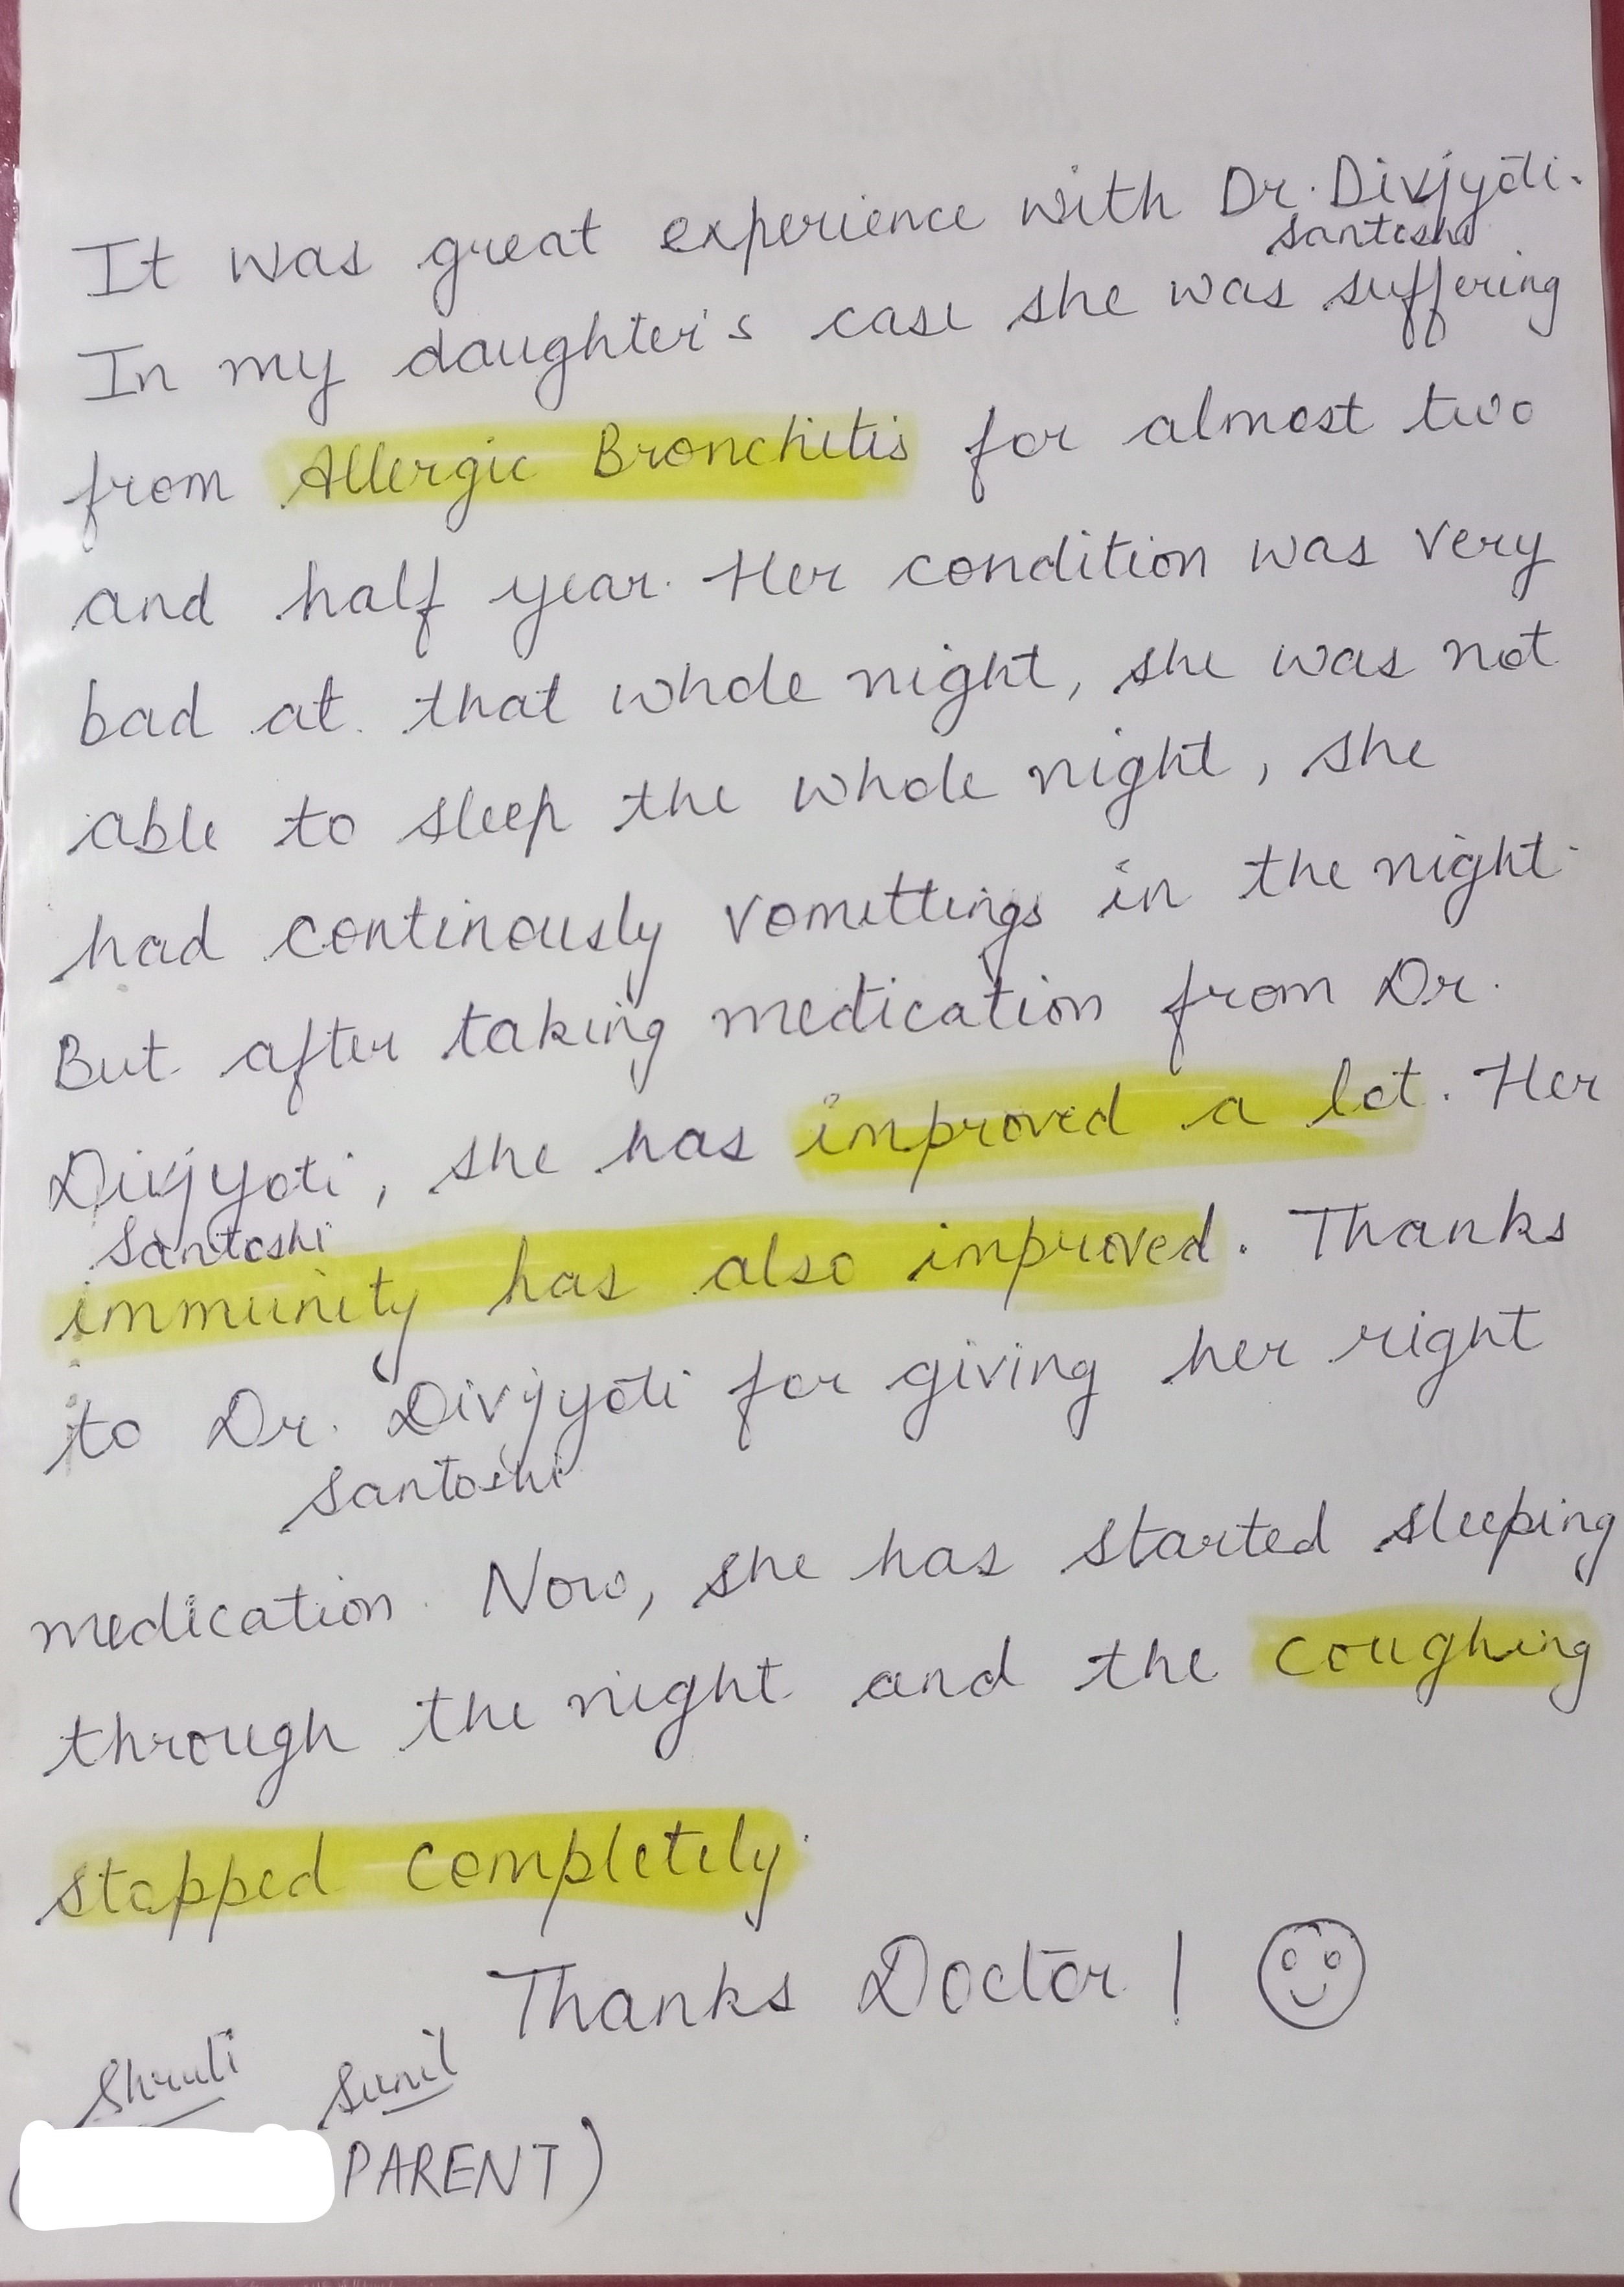 It was great experience with Dr. Divjyoti.
Santoshi
In my daughter's case she was suffering
from Allergic Bronchitis for almost two
and half year. Her condition was very
bad at that whole night, she was not
able to sleep the whole night, she
had continously vomittings in the night.
But after taking medication from Dr.
Divjyoti, she has improved a lot. Her
Santoshi
immunity has also improved. Thanks
to Dr. Divjyoti for giving her right
Santoshi
medication. Now, she has started sleeping
through the night and the coughing
stopped completely.
Thanks Doctor! ☺
Shruti Sunil
( PARENT)